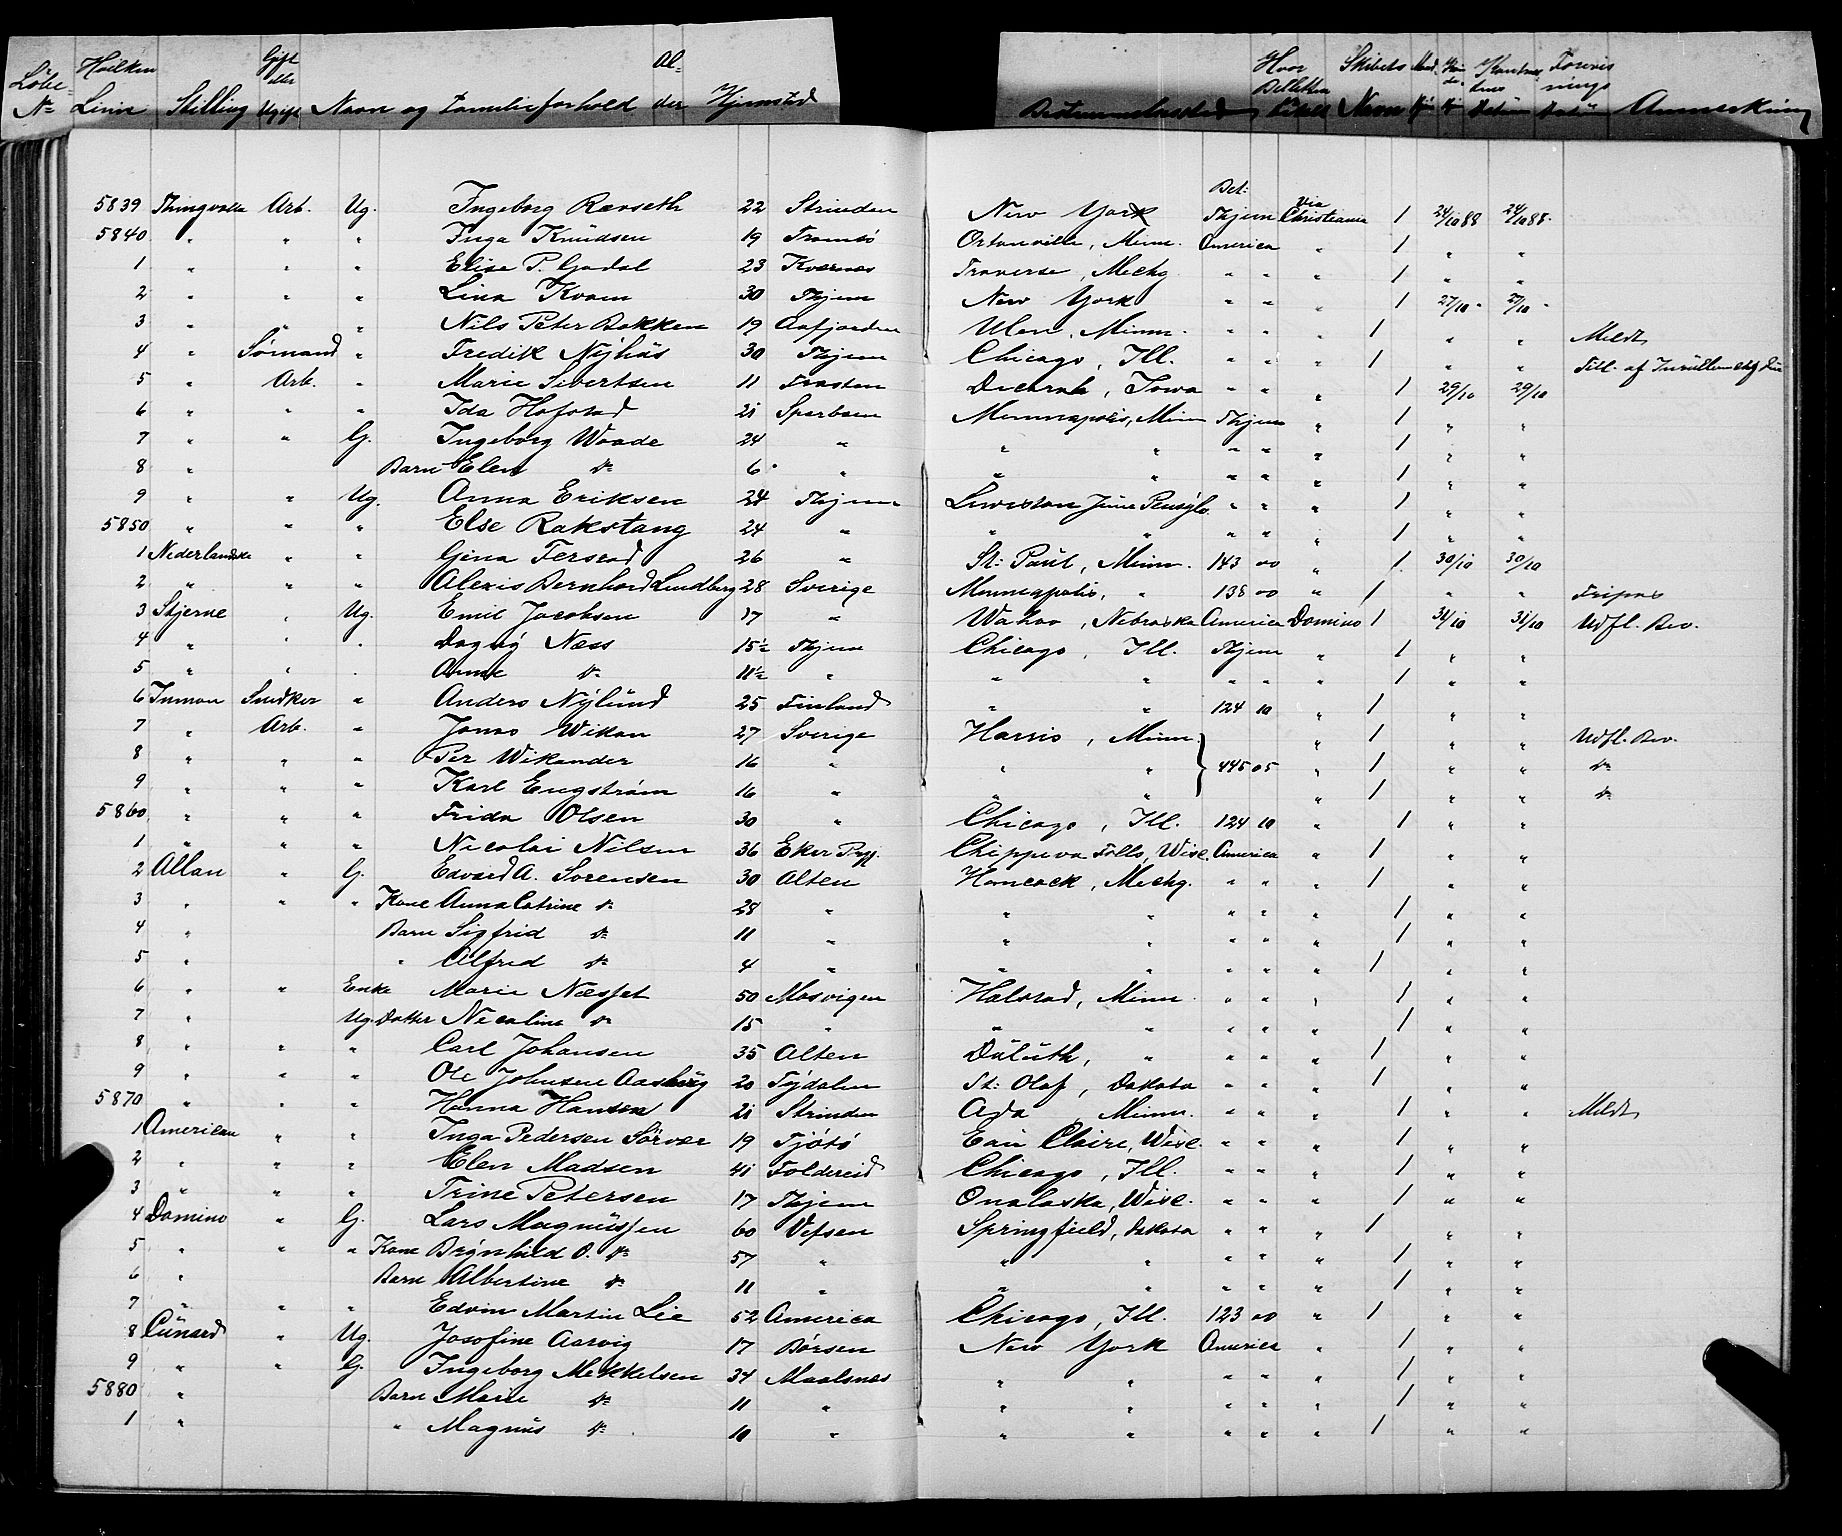 Löbe- Hvilken Gift Al- Hvor Skibets Mand Kontrak- Forevis
№ Linie Stilling eller Ugift Navn og Familieforhold der Hjemsted Bestemmelsessted Billetten Navn Datum nings Datum Anmerkning
5839 Thingvalla Arb. Ug. Ingeborg Ravseth 22 Strinden New York Bet: Thjem via Christiania 1 24/10 88 24/10 88
5840 " " " Inga Knudsen 19 Tromsö Ortonville, Minn. America " 1 " "
1 " " " Elise P. Gadal 23 Kvernes Traverse, Mechg. " " " 1 " "
2 " " " Lina Kvam 30 Thjem New York " " " 1 27/10 " 27/10 "
3 " " " Nils Peter Bakken 19 Aafjorden Ulen, Minn. " " " 1 " " Meldt
4 " Sömand " Fredik Nyhüs 30 Thjem Chicago, Ill. " " " 1 " " Till. af
5 " Arb. " Marie Sivertsen 11 Frosten Decorah, Iowa " " " 1 29/10 29/10
6 " " " Ida Hofstad 21 Sparboen Minneapolis, Minn Thjem " 1 " "
7 " " G. Ingeborg Waade 24 " " " " " " 1 " "
8 " Barn Elen do 6 " " " " " " 1 " "
9 " " Ug. Anna Eriksen 24 Thjem Lewistan " " " 1 " "
5850 " " " Else Rakstang 24 " " " " " " 1 " "
1 Nederlandske " " Gina Fersrad 26 " St: Paul, Minn. 143 00 " 1 30/10 30/10
2 " " " Alexis Bernhard Lundberg 28 Sverige Minneapolis, " 138 00 " 1 " " Fripas
3 Stjerne " Ug. Emil Jacobsen 17 " Wahoo, Nebraska America Domino 1 31/10 31/10 Udfl. Bev.
4 " " " Dagny Næss 15½ Thjem Chicago, Ill. Thjem " 1 " "
5 " " " Anne do 11½ " " " " " " 1 " "
6 Inman Snedker " Anders Nylund 25 Finland " " 124 10 " 1 " "
7 " Arb. " Jonas Wikan 27 Sverige Harris, Minn. " 1 " " Udfl. Bev.
8 " " " Per Wikander 16 " " " 445 05 " 1 " " do
9 " " " Karl Engström 16 " " " " 1 " " do
5860 " " " Frida Olsen 30 " Chicago, Ill. 124 10 " 1 " "
1 " " " Nicolai Nilsen 36 Eker Pgj. Chippeva Falls, Wisc. America " 1 " "
2 Allan " G. Edvard A. Sorensen 30 Alten Hancock, Mechg. " " " 1 " "
3 " " " Kone Anna Catrine do 28 " " " " " " 1 " "
4 " Barn Sigfrid do 11 " " " " " " 1 " "
5 " " Alfred do 4 " " " " " " 1 " "
6 " " Enke Marie Næsset 50 Mosvigen Halstad, Minn. " " " 1 " "
7 " Ug. Datter Nicoline do 15 " " " " " " 1 " "
8 " " " Carl Johansen 35 Alten Dülüth, " " " " 1 " "
9 " " " Ole Johnsen Aasberg 20 Tydalen St: Olaf, Dakota " " " 1 " "
5870 " " " Hanna Hansen 21 Strinden Ada Minn. " " " 1 " " Meldt
1 American " " Inga Pedersen Sörver 19 Tjötö Eau Claire, Wisc. " " " 1 " "
2 " " " Elen Madsen 41 Foldereid Chicago, Ill. " " " 1 " "
3 " " " Trine Petersen 17 Thjem Onalaska, Wisc. " " " 1 " "
4 Domino " G. Lars Magnussen 60 Vefsen Springfield, Dakota " " " 1 " "
5 " " " Kone Brynhild O. do 57 " " " " " " 1 " "
6 " Barn Albertine do 11 " " " " " " 1 " "
7 " " " Edvin Martin Lie 52 America Chicago, Ill. 123 00 " 1 " "
8 Cünard " Ug. Josefine Aarvig 17 Börsen New York America " 1 " "
9 " " G. Ingeborg Mekkelsen 34 Maalsnes " " " " " 1 " "
5880 " Barn Marie do 11 " " " " " " 1 " "
1 " " Magnus do 10 " " " " " " 1 " "